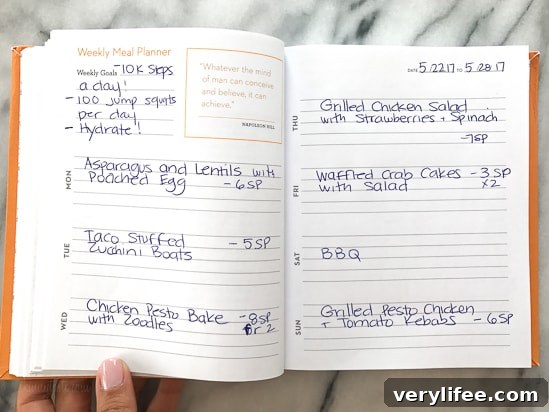 Weekly Meal Planner
Weekly Goals - 10K Steps
a day!
- 100 jump squats
per day
- Hydrate!
"Whatever the mind
of man can conceive
and believe, it can
achieve."
NAPOLEON HILL
MON
Asparagus and Lentils with
Poached Egg - 6SP
TUE
Taco Stuffed - 5SP
Zucchini Boats
WED
Chicken Pesto Bake - 8SP
with Zoodles for 2
DATE 5/22/17 TO 5/28/17
THU
Grilled Chicken Salad
with Strawberries + Spinach
- 7SP
FRI
Waffled Crab Cakes - 3SP
with Salad x2
SAT
BBQ
SUN
Grilled Pesto Chicken
+ Tomato Kebabs - 6SP
verylifee.com